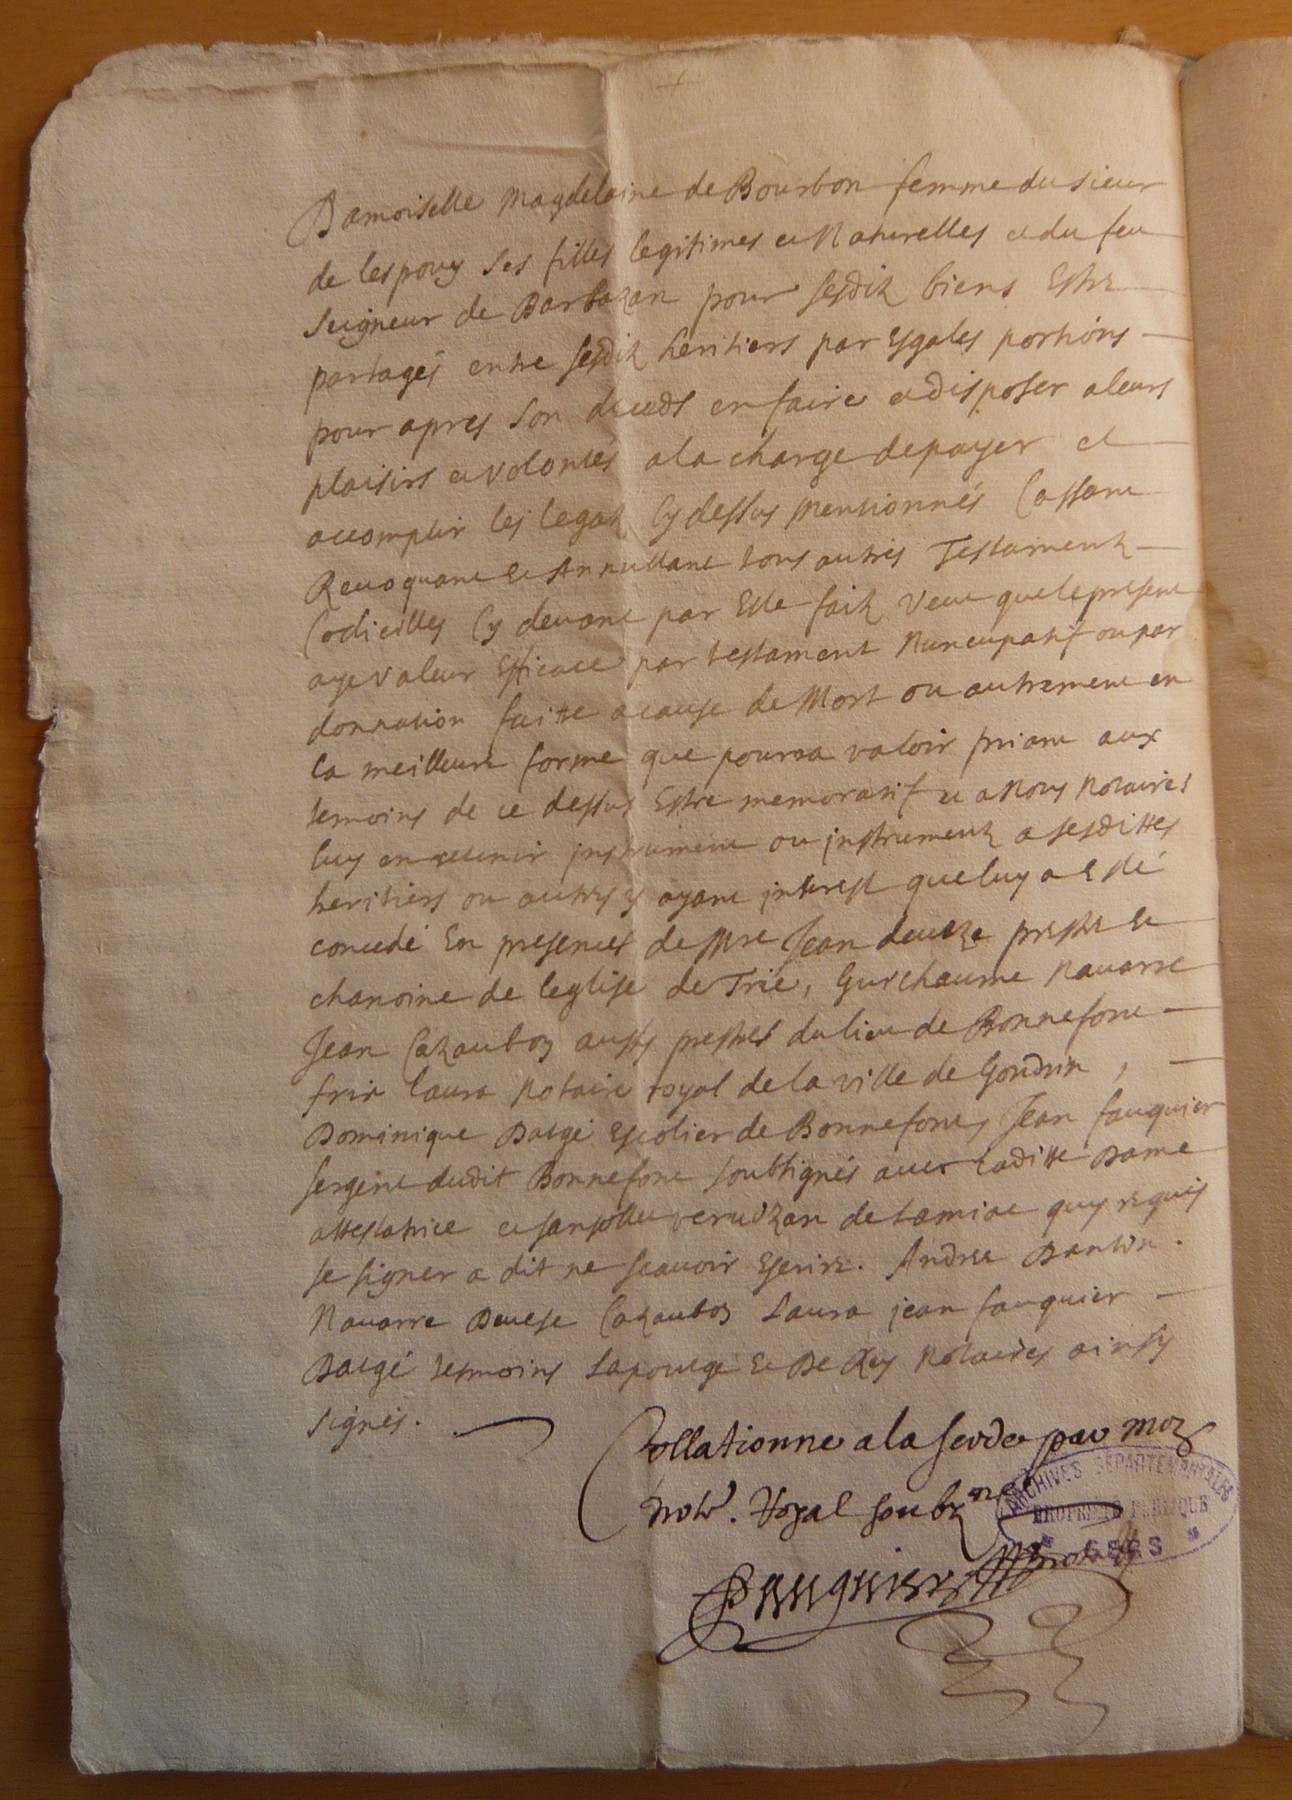 Damoiselle Magdelaine de Bourbon femme du sieur
de lespouy ses filles legitimes et Naturelles et du feu
seigneur de Barbazan pour sesditz biens Estre
partagés entre sesditz heritiers par Esgales portions
pour apres son deceds en faire et disposer a leurs
plaisirs et volontés a la charge de payer et
accomplir les legatz Cy dessus Mentionnés Cassant
Revoquant et Annullant tous autres Testamentz
Codicilles Cy devant par Elle faitz Veut que le present
aye valeur Efficace par testament Nuncupatif ou par
donnation faitte a cause de Mort ou autrement en
la meilleure forme que pourra valoir priant aux
temoins de ce dessus Estre memoratif et a Nous Notaires
luy en retenir instrument ou instrumentz a sesdittes
heritiers ou autres y ayant interest que luy a Esté
concedé En presences de Mre Jean deveze prestre et
chanoine de leglise de Trie, Guilhaume Navarre
Jean Cazaubon aussy prestres du lieu de Bonnefont
frix Laura Notaire royal de la ville de Gondrin,
Dominique Dasgé Escolier de Bonnefont, Jean fauquier
sergent dudit Bonnefont soubsignés avec laditte Dame
attestatrice et verduzan de Lamiac quy requis
se signer a dit ne scavoir Escrire. Andrée Dantin.
Navarre Devese Cazaubon Laura jean fauquier
Dasgé tesmoins Lapouge et De Rey Notaires ainsy
signés.
Collationne a la sceda par moy
notre. Royal soubzne
Fauquier
ARCHIVES DEPARTEMENTALES
PROPRIETE PUBLIQUE
* GERS *